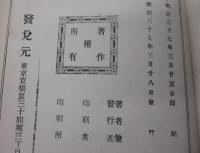 明治三十七年三月廿五日印刷
明治三十七年三月廿八日發行
著作
權
所有
著者兼
發行者
印刷者
印刷所
發兌元
東京京橋區三十間堀三丁目